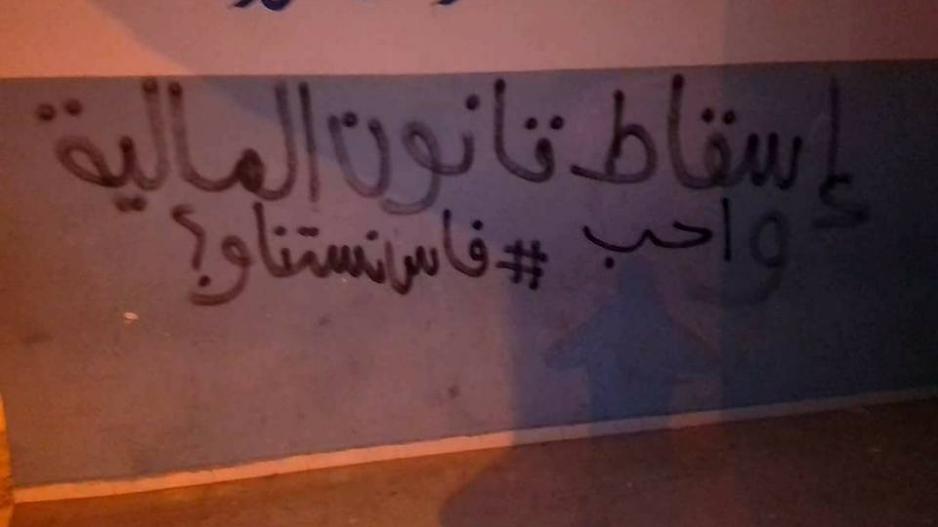 إسقاط قانون المالية
واحب #فاس نستناو؟